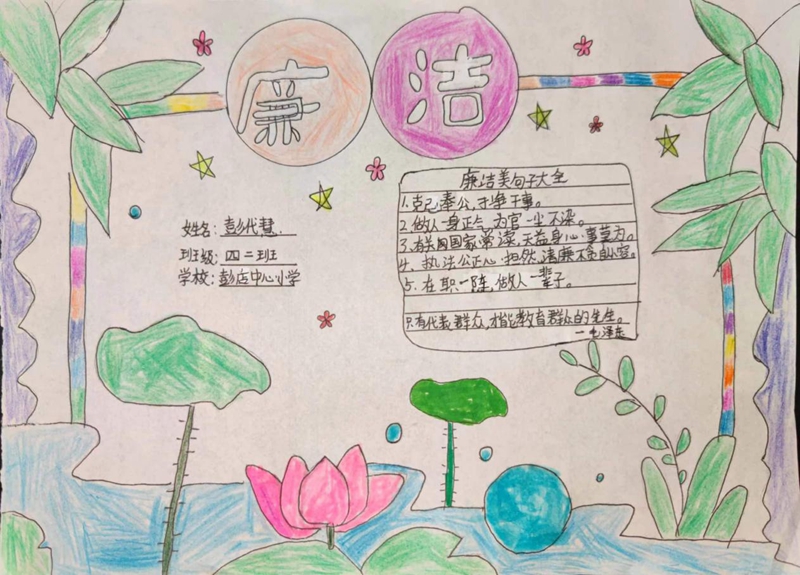 廉洁
姓名：彭代慧
班级：四二班
学校：彭店中心小学
廉洁美句子大全
1.克己奉公，干净干事。
2.做人一身正气，为官一尘不染。
3.有关国家常读，无益身心事莫为。
4、执法公正心坦然，清廉不贪自心宽。
5.在职一阵，做人一辈子。
只有代表群众，才能教育群众的先生。
—毛泽东